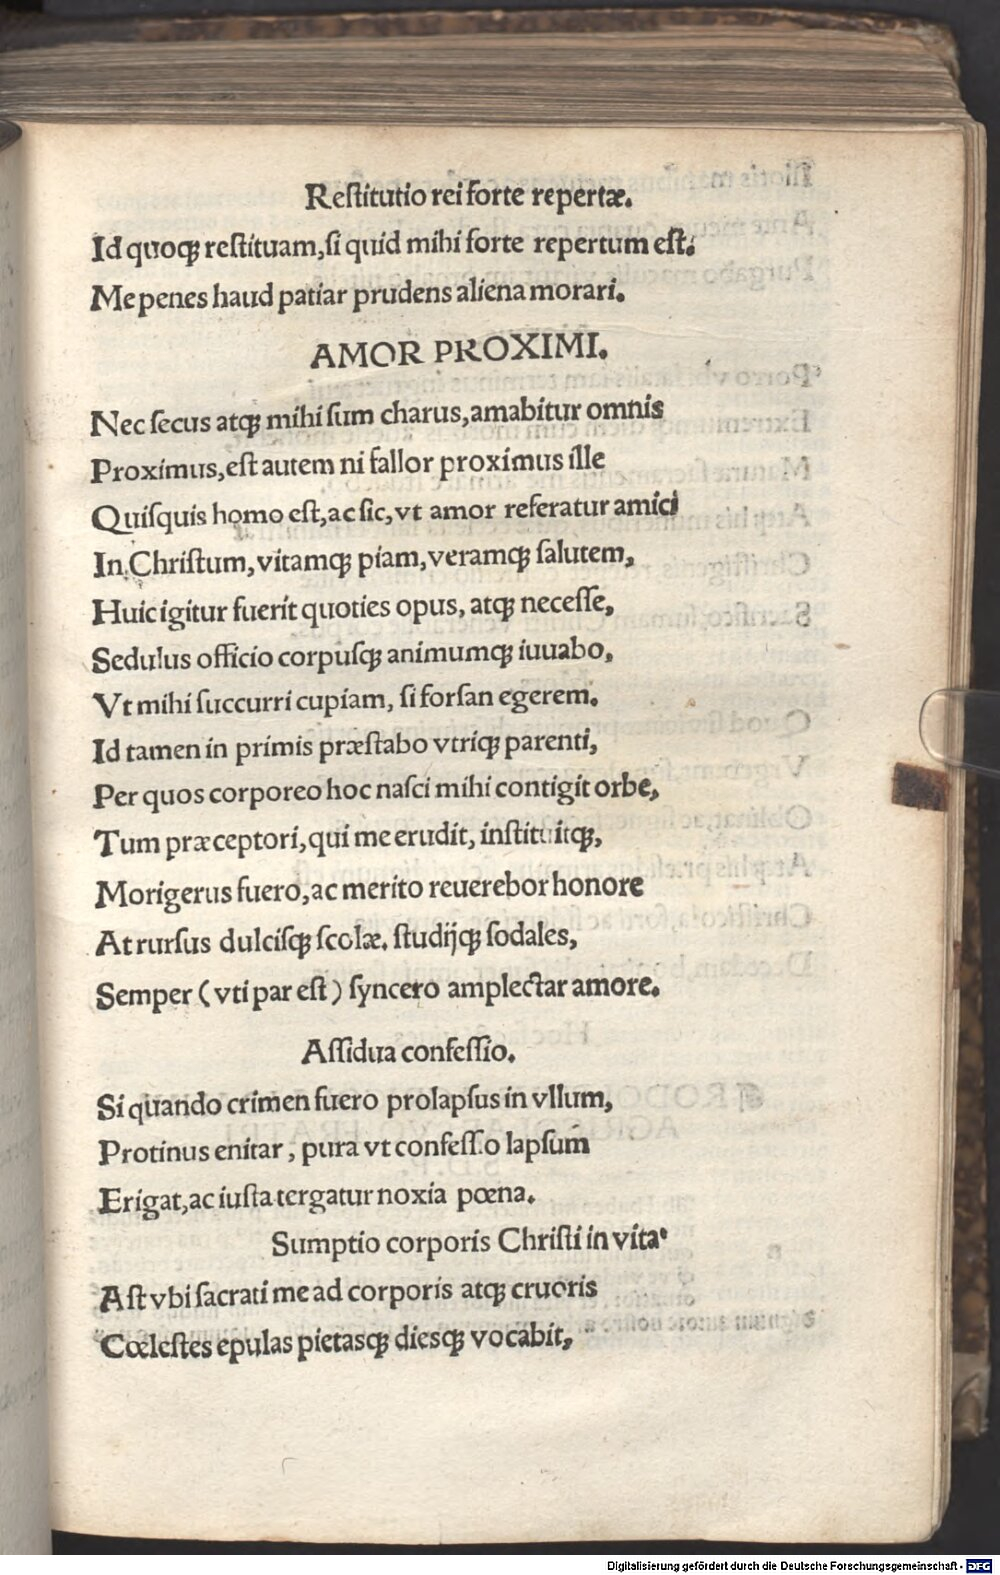 Reſtitutio rei forte repertæ.
Id quoqꝫ reſtituam, ſi quid mihi forte repertum eſt.
Me penes haud patiar prudens aliena morari.
AMOR PROXIMI.
Nec ſecus atqꝫ mihi ſum charus, amabitur omnis
Proximus, eſt autem ni fallor proximus ille
Quiſquis homo eſt, ac ſic, vt amor referatur amici
In Chriſtum, vitamqꝫ piam, veramqꝫ ſalutem,
Huic igitur fuerit quoties opus, atqꝫ neceſſe,
Sedulus officio corpuſqꝫ animumqꝫ iuuabo,
Vt mihi ſuccurri cupiam, ſi forſan egerem.
Id tamen in primis præſtabo vtriqꝫ parenti,
Per quos corporeo hoc naſci mihi contigit orbe,
Tum præceptori, qui me erudit, inſtituitqꝫ,
Morigerus fuero, ac merito reuerebor honore
At rurſus dulciſqꝫ ſcolæ. ſtudijqꝫ ſodales,
Semper (vti par eſt) ſyncero amplectar amore.
Aſſidua confeſſio.
Si quando crimen fuero prolapſus in vllum,
Protinus enitar, pura vt confeſſio lapſum
Erigat, ac iuſta tergatur noxia pœna.
Sumptio corporis Chriſti in vita
Aſt vbi ſacrati me ad corporis atqꝫ cruoris
Cœleſtes epulas pietasqꝫ diesqꝫ vocabit,
Digitalisierung gefördert durch die Deutsche Forschungsgemeinschaft - DFG